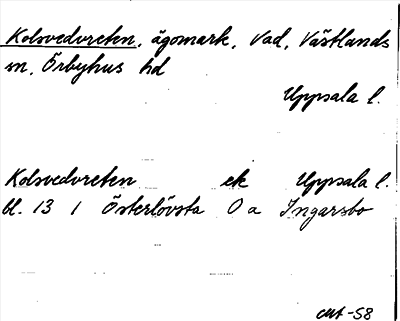 Kolsvedvreten, ägomark, Vad, Västlands
sn, Örbyhus hd
Uppsala l.
Kolsvedvreten ek Uppsala l.
bl. 13 1 Österlövsta 0 a Ingarsbo
-58